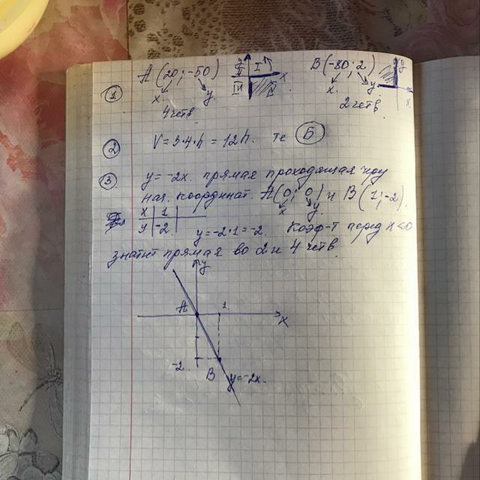 ① A(20; -50) I II III IV x B(-80; 2) y
x y x y x
4 четв 2 четв
② V = 3·4·h = 12h. те Б
③ y = -2x. прямая проходящая
нач. координат. A(0; 0) и B(1; -2).
x 1 x y
y -2 y = -2·1 = -2. Коэф-т перед x<0
значит прямая во 2 и 4 четв.
y
A 1 x
-2
B y=-2x.